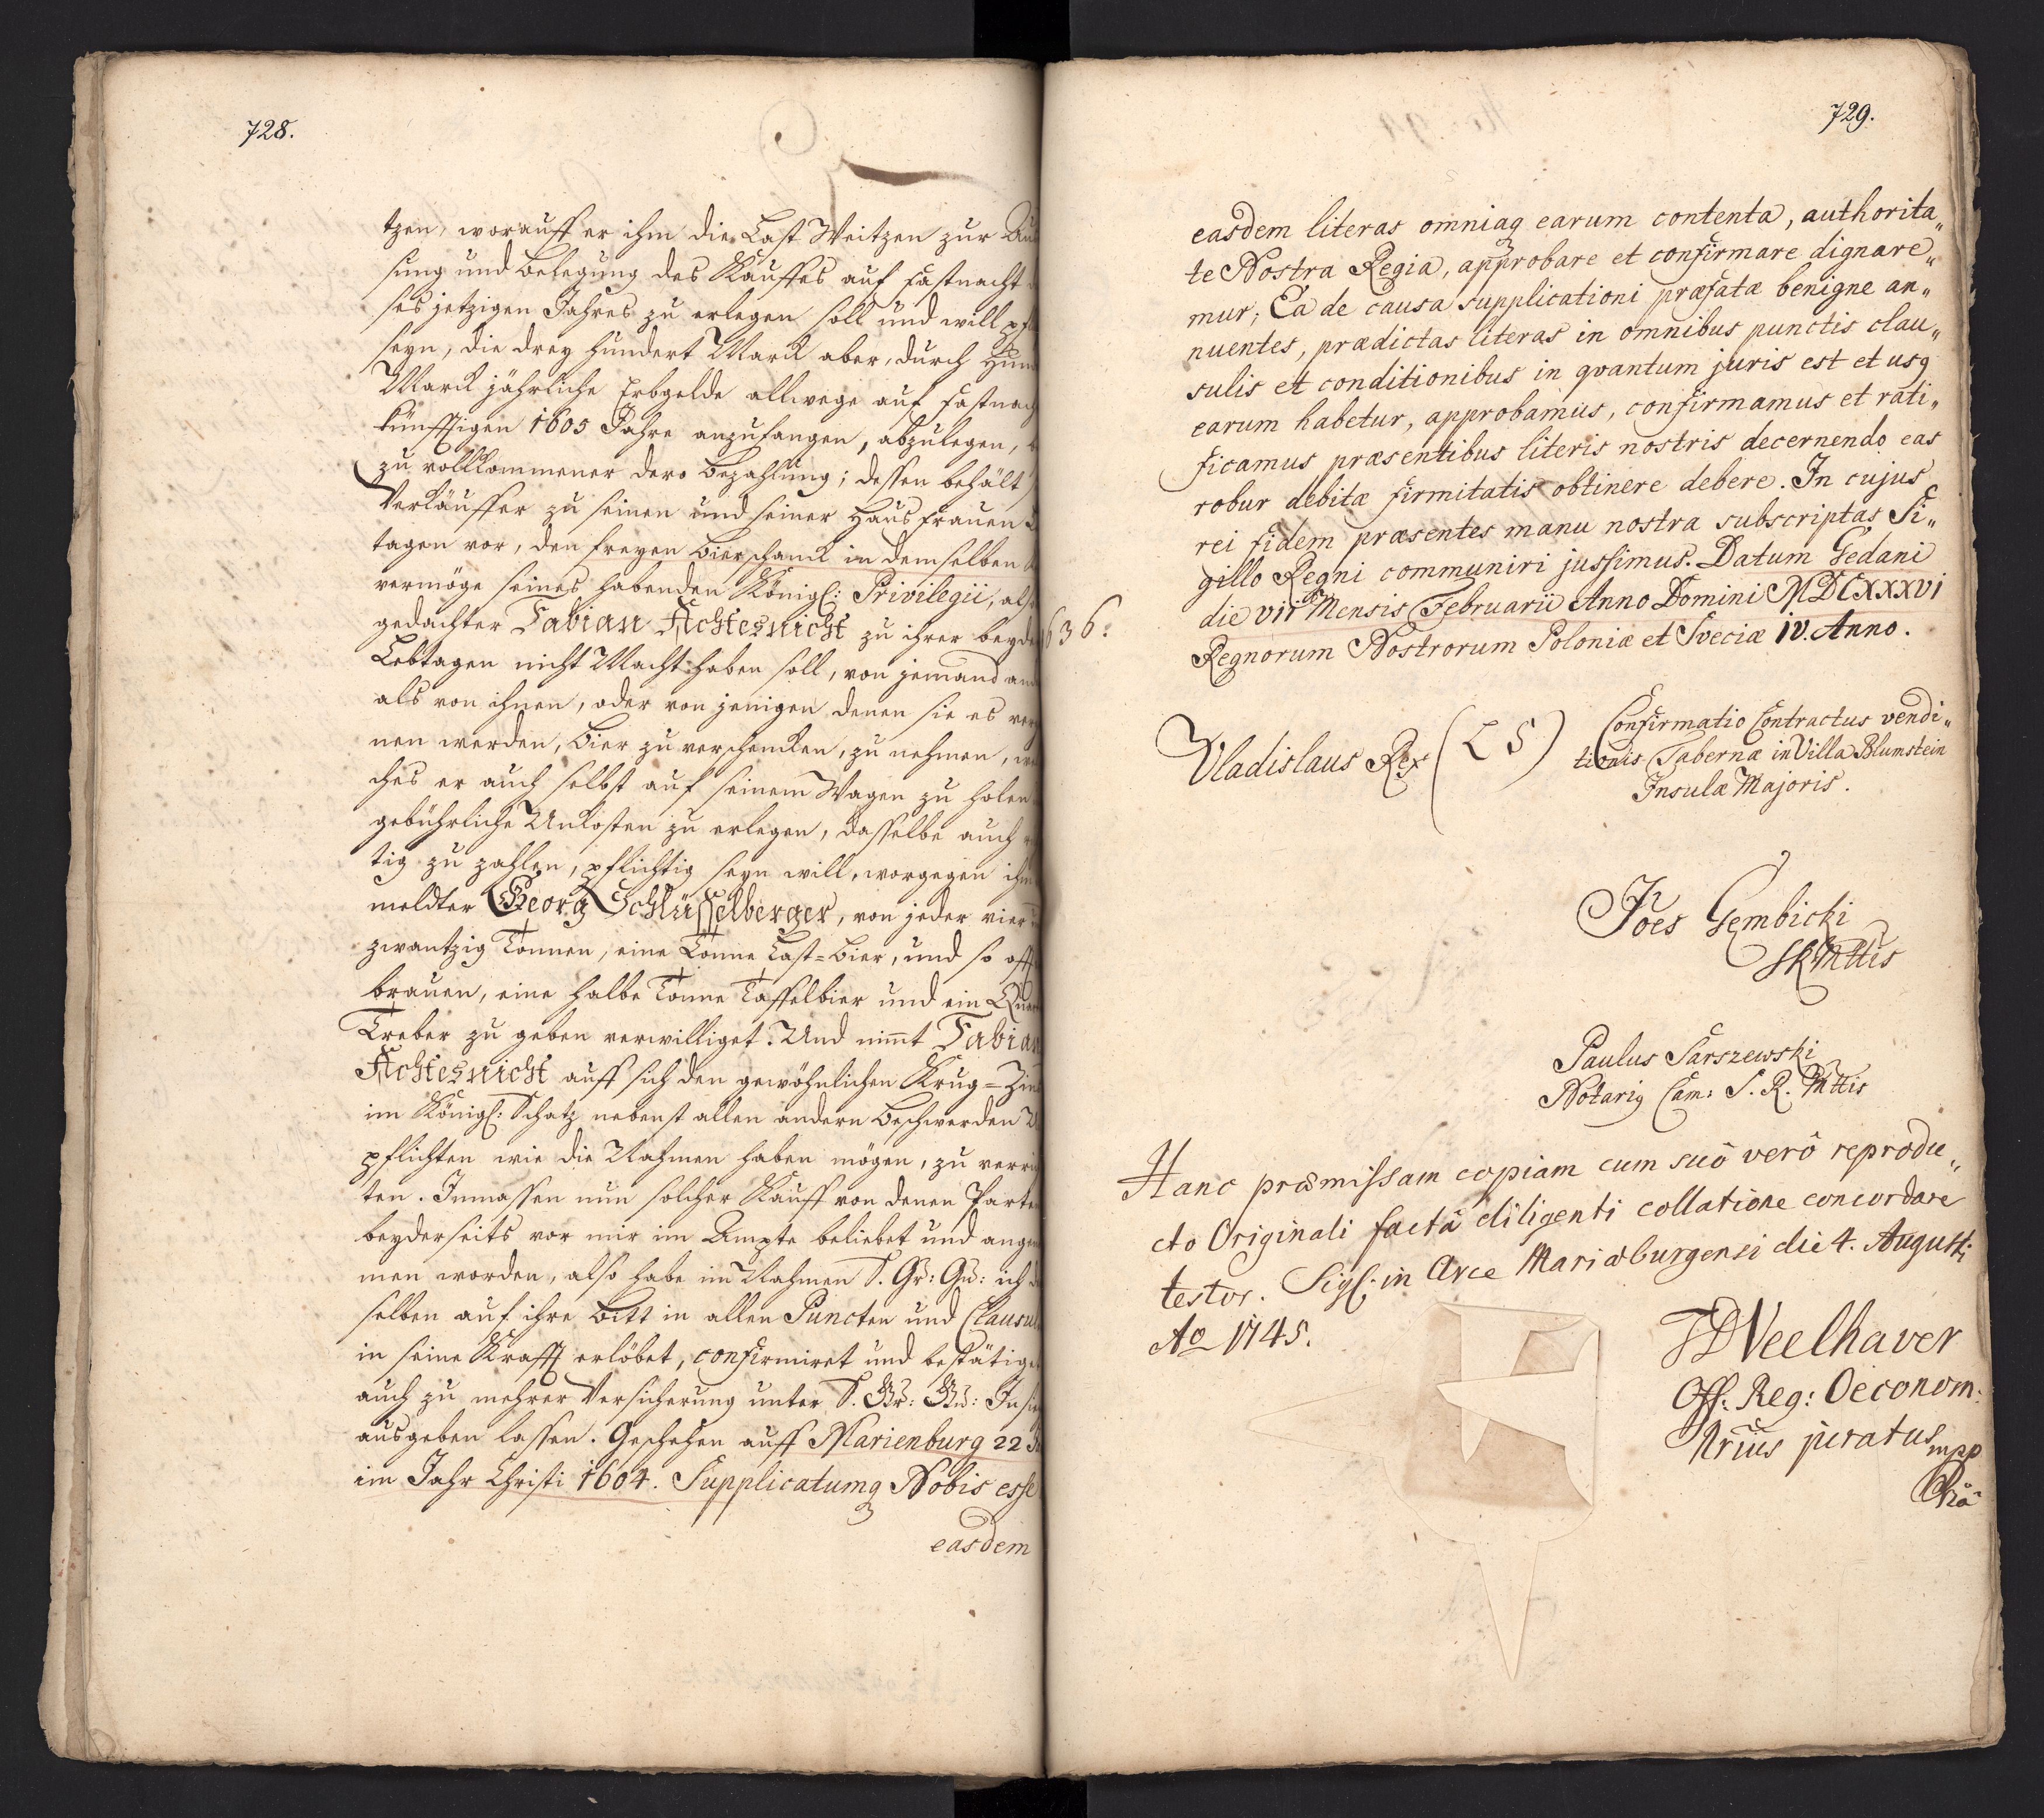 728.
tzen, worauff er ihm die Last Weitzen zur
sung und Belegung des Kauffes auf Fastnacht
ses jetzigen Jahres zu erlegen soll und will
seyn, die drey hundert Marck aber, durch
Marck jährliche Erbgelde allwege auf
künfftigen 1605 Jahre anzufangen, abzulegen,
zu vollkommener dero Bezahlung; dessen behält
Verkäuffer zu seinen und seiner Hausfrauen
tagen vor, den freyen Bierschanck in demselben
vermöge seines habenden Königl: Privilegii,
gedachter Fabian Achtesnicht zu ihrer
Lebtagen nicht Macht haben soll, von jemand
als von ihnen, oder von jenigen denen sie es
nen werden, Bier zu verschencken, zu nehmen,
ches er auch selbst auf seinem Wagen zu holen
gebührliche Unkosten zu erlegen, dasselbe auch
tig zu zahlen, pflichtig seyn will, worgegen
meldter Georg Schlüsselberger, von jeder vier
zwantzig Tonnen, eine Tonne Last-Bier, und so
brauen, eine halbe Tonne Taffelbier und ein
Treber zu geben verwilliget. Und nimt Fabian
Achtesnicht auff sich den gewöhnlichen Krug-
im Königl: Schatz nebenst allen andern Beschwerden
pflichten wie die Nahmen haben mögen, zu
ten. Inmassen nun solcher Kauff von denen
beyderseits vor mir im Ampte beliebet und
men worden, also habe im Nahmen S. Gr: Gn: ich
selben auf ihre Bitt in allen Puncten und
in seine Krafft erlöbet, confirmiret und
auch zu mehrer Versicherung unter S. Gr: Gn:
ausgeben lassen. Geschehen auff Marienburg 22
im Jahr Christi 1604. Supplicatumq Nobis esse
easdem
729.
easdem literas omniaq earum contenta, authorita„
te Nostra Regia, approbare et confirmare dignare„
mur; Ea de causa supplicationi præfatæ benigne an„
nuentes, prædictas literas in omnibus punctis clau„
sulis et conditionibus in qvantum juris est et usq
earum habetur, approbamus, confirmamus et rati„
ficamus præsentibus literis nostris decernendo eas
robur debitæ firmitatis obtinere debere. In cujus
rei fidem præsentes manu nostra subscriptas Si„
gillo Regni communiri jussimus. Datum Gedani
636: die VII Mensis Februarii Anno Domini MDCXXXVI
Regnorum Nostrorum Poloniæ et Sveciæ IV. Anno.
Vladislaus Rex (L S) Confirmatio Contractus vendi„
tionis Tabernæ in Villa Blumstein
Insulæ Majoris.
Joes Gembicki
SRMttis
Paulus Sarszewski
Notariq Cam: S. R. Mttis
Hanc præmissam copiam cum suô verô reprodu„
cto Originali factâ diligenti collatione concordare
testor. Sigl: in Arce Mariæburgensi die 4. Augusti
Ao 1745.
Veelhaver
Off: Reg: Oeconom:
Nrius juratus mpp